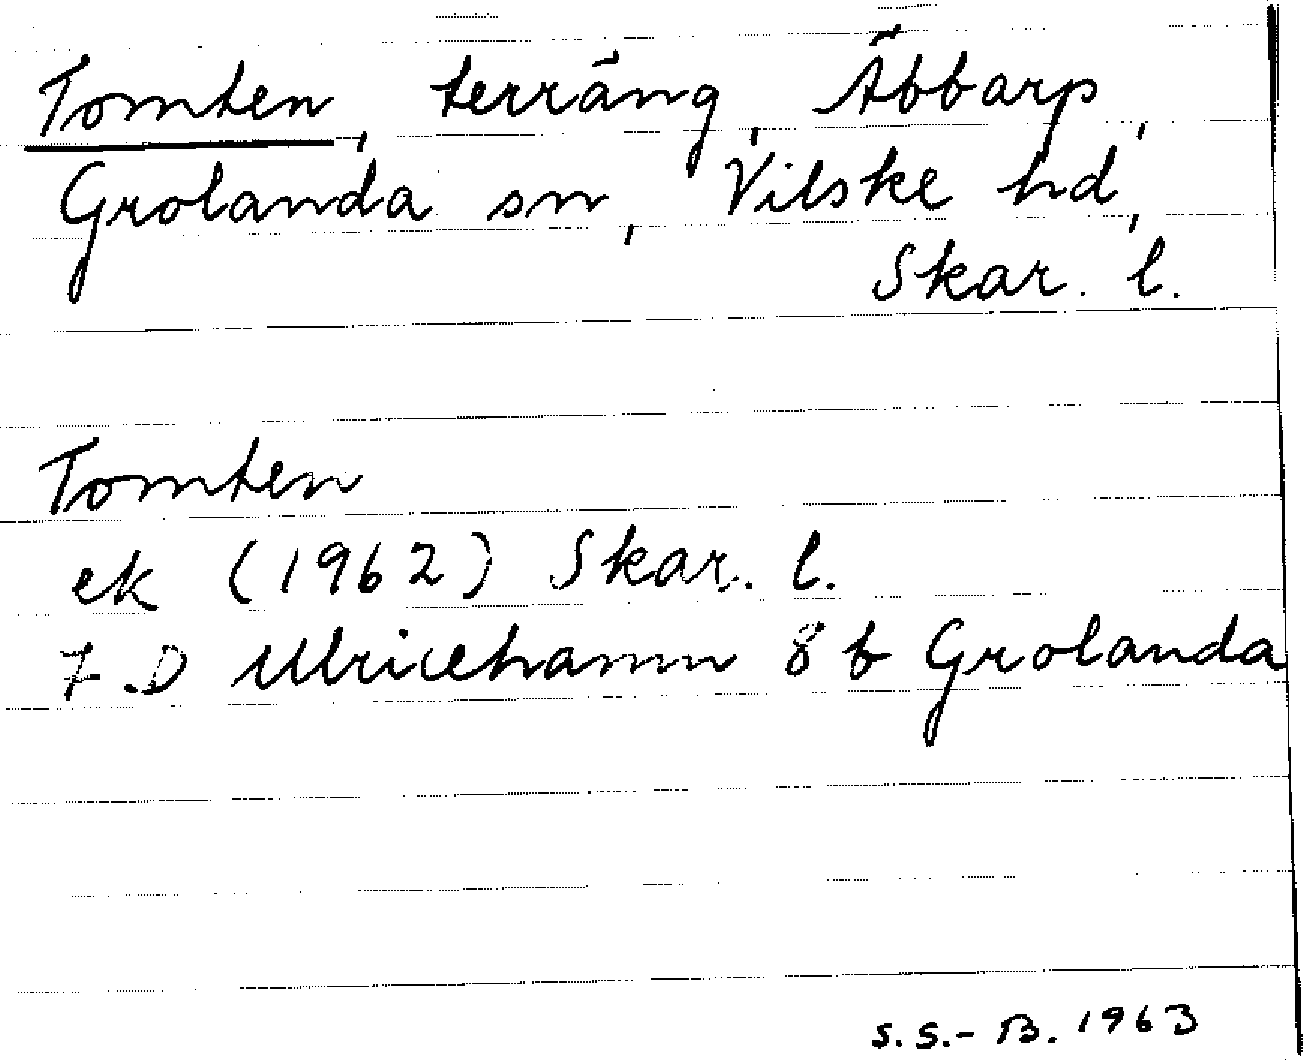 Tomten, terräng, Äbbarp,
Grolanda sn, Vilske hd,
Skar. l.
Tomten
ek (1962) Skar. l.
7 D Ulricehamn 8 b Grolanda
S.S.-B. 1963